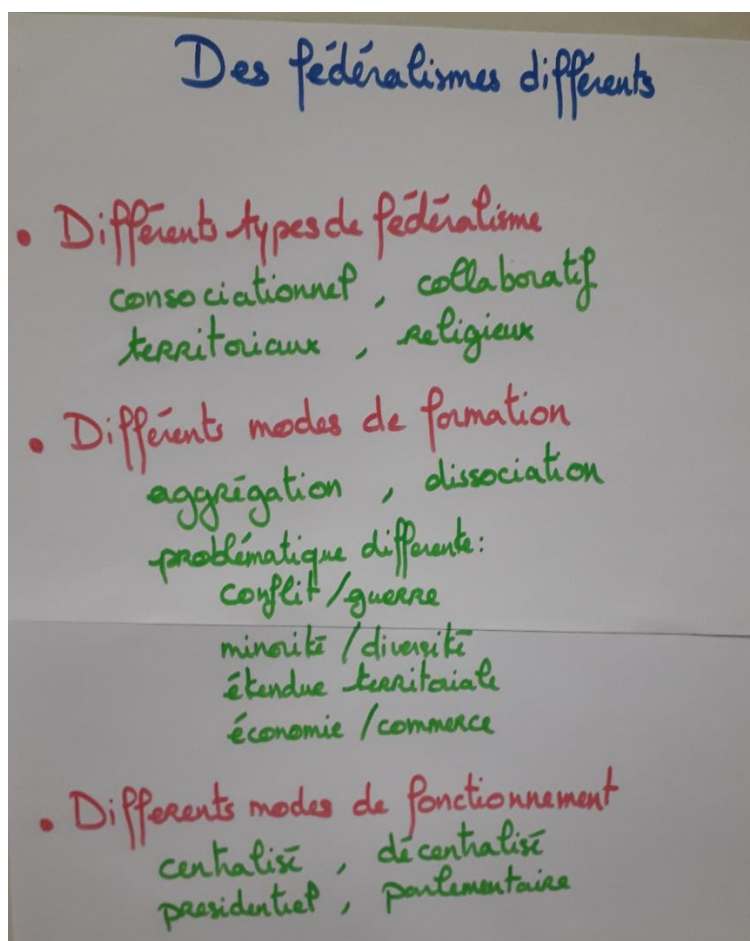 Des fédéralismes différents
• Différents types de fédéralisme
consociationnel, collaboratif
territoriaux, religieux
• Différents modes de formation
aggrégation, dissociation
problématique differente:
conflit/guerre
minorité/diversité
étendue territoriale
économie/commerce
• Differents modes de fonctionnement
centralisé, décentralisé
presidentiel, parlementaire